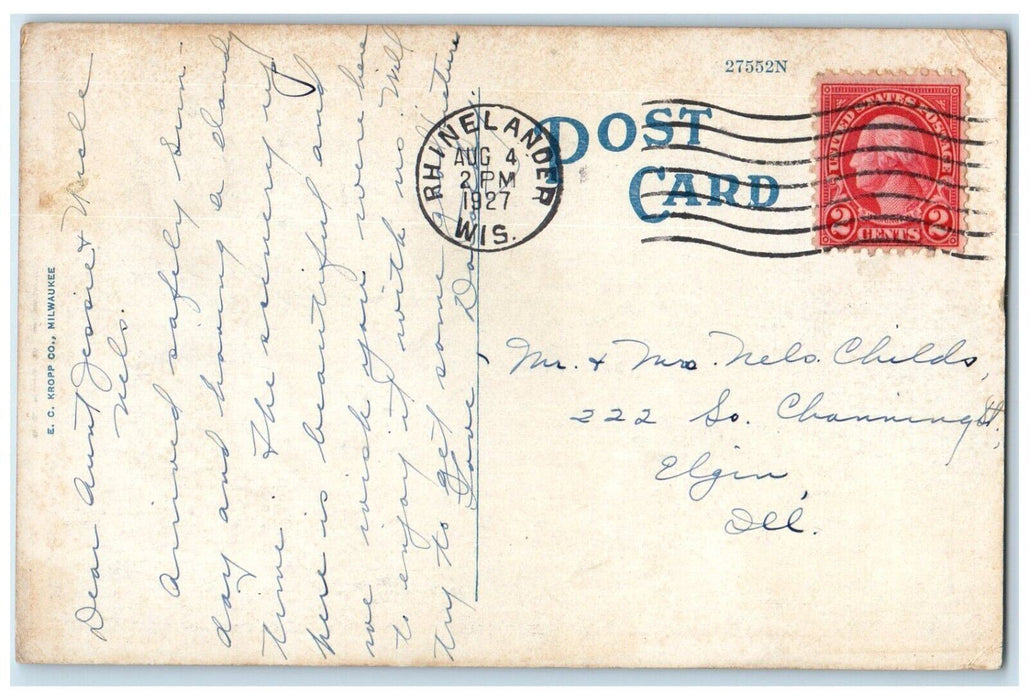 27552N
POST
CARD
RHINELANDER
AUG 4
2 PM
1927
WIS.
UNITED STATES POSTAGE
2 CENTS 2
E. C. KROPP CO., MILWAUKEE
Dear Aunt Jessie & Uncle
Nels.
Arrived safely Sun-
day and having a dandy
time. The scenery up
here is beautiful and
we wish you were here
to enjoy it with us. Will
try to get some
Love,
Mr. & Mrs. Nels. Childs,
222 So. Channing St.
Elgin,
Ill.